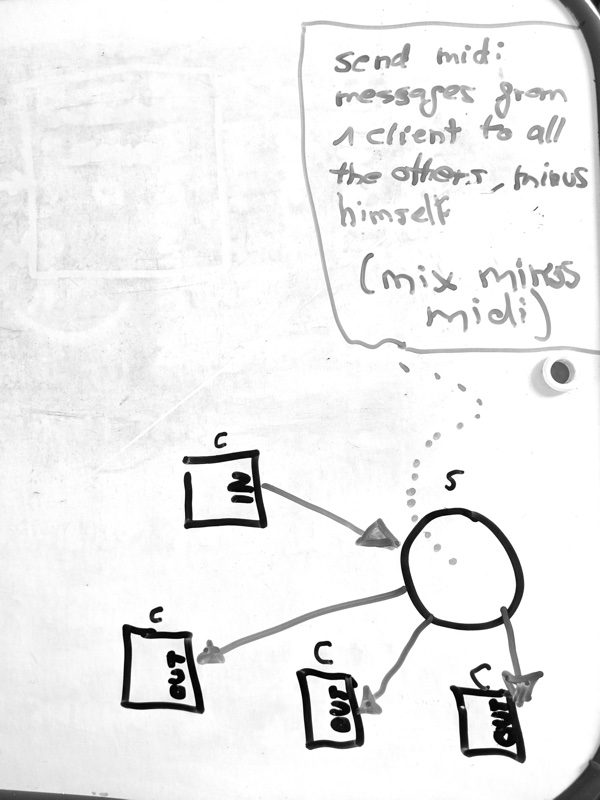 send midi
messages from
1 client to all
the others, minus
himself
(mix minus
midi)
C
IN
S
C
OUT
C
OUT
C
OUT